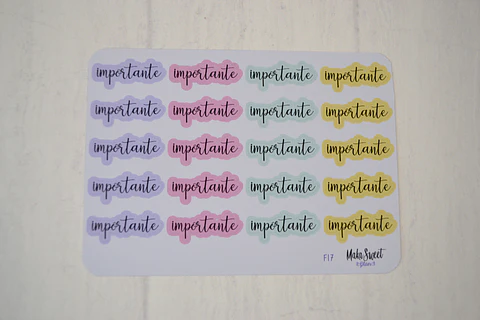 importante importante importante importante
importante importante importante importante
importante importante importante importante
importante importante importante importante
importante importante importante importante
F17 Make Sweet